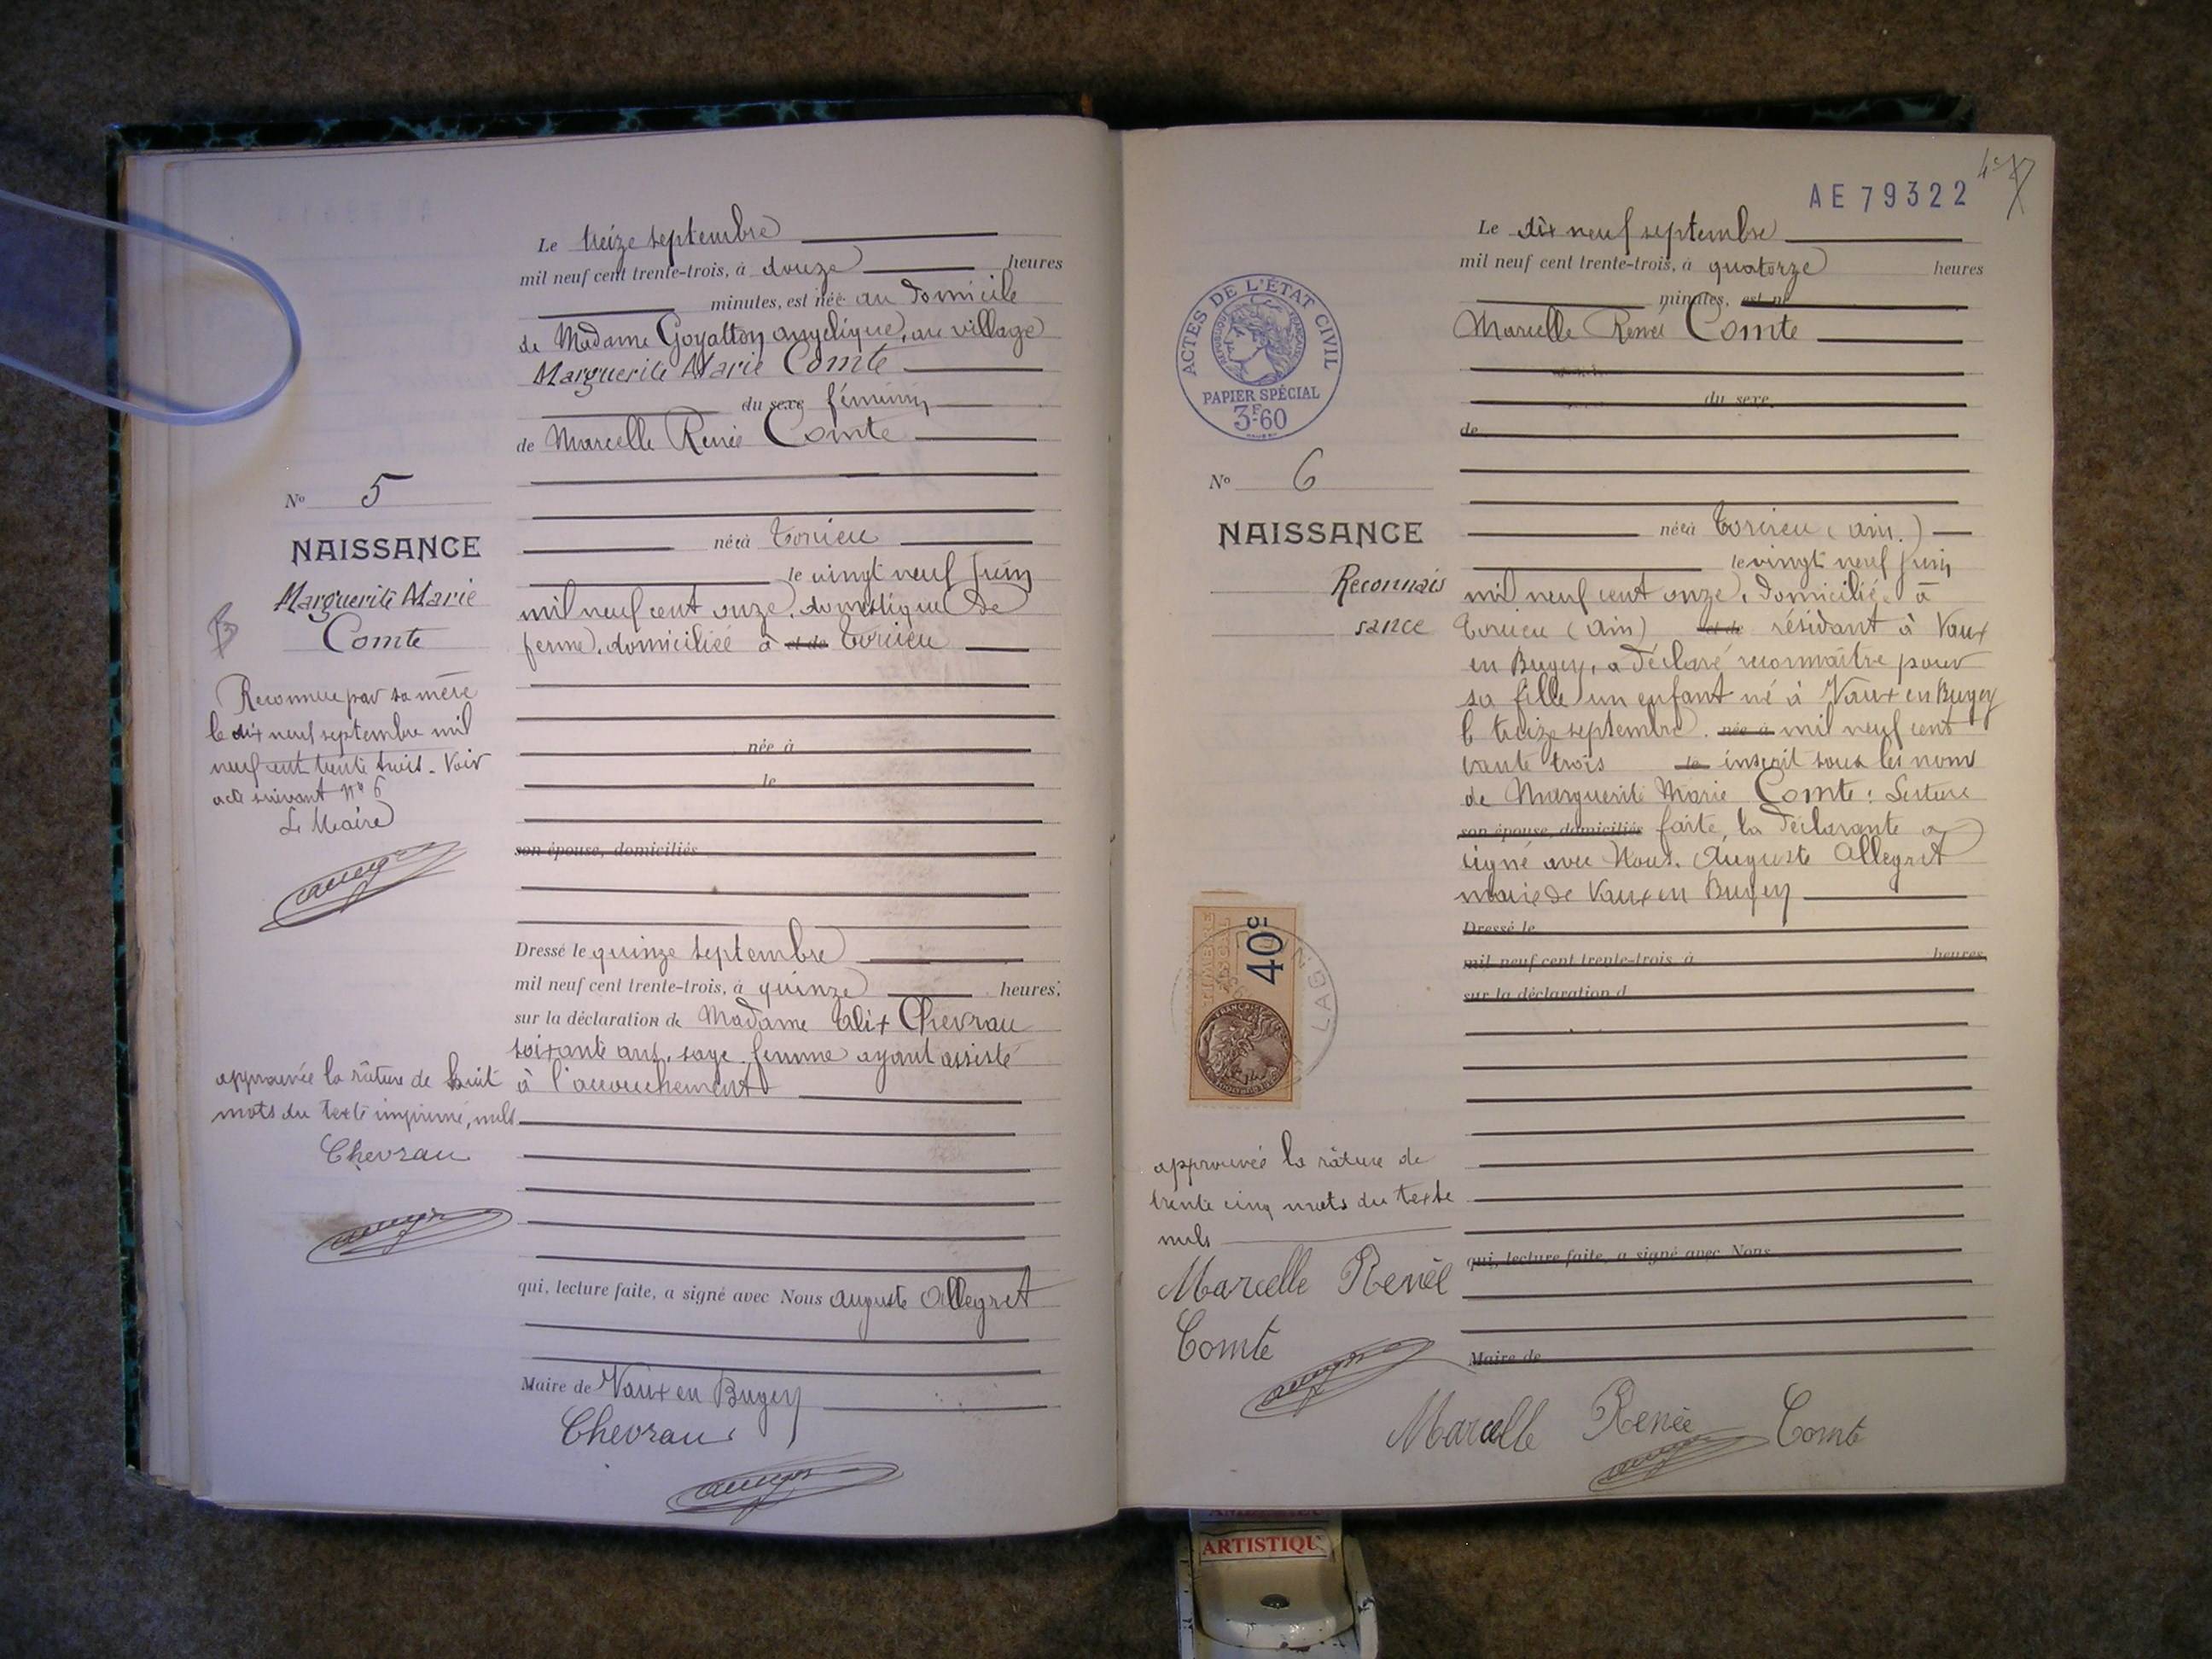 Le treize septembre
mil neuf cent trente-trois, à douze heures
minutes, est née au domicile
de Madame Goyatton angelique, au village
Marguerite Marie Comte
du sexe féminin
de Marcelle Renée Comte
No 5
NAISSANCE
Marguerite Marie
Comte
Reconnue par sa mère
le dix neuf septembre mil
neuf cent trente trois. Voir
acte suivant No 6
Le Maire
née à Torcieu
le vingt neuf Juin
mil neuf cent onze, domestique de
ferme, domiciliée à et de Torcieu
née à
le
son épouse, domiciliés
Dressé le quinze septembre
mil neuf cent trente-trois, à quinze heures,
sur la déclaration de Madame Chevrau
soixante ans, sage femme ayant assisté
à l'accouchement
approuvée la râture de huit
mots du texte imprimé, nuls
Chevrau
qui, lecture faite, a signé avec Nous auguste Allegret
Maire de Vaux en Bugey
Chevrau
AE 79322
Le dix neuf septembre
mil neuf cent trente-trois, à quatorze heures
minutes, est né
Marcelle Renée Comte
du sexe
de
ACTES DE L'ÉTAT CIVIL
RÉPUBLIQUE FRANÇAISE
PAPIER SPÉCIAL
3F60
No 6
NAISSANCE
Reconnais
sance
née à Torcieu (ain.)
le vingt neuf Juin
mil neuf cent onze, domiciliée à
Torcieu (Ain) et de résidant à Vaux
en Bugey, a déclaré reconnaître pour
sa fille un enfant né à Vaux en Bugey
le treize septembre née à mil neuf cent
trente trois le inscrit sous les noms
de Marguerite Marie Comte. Lecture
son épouse, domiciliés faite, la déclarante a
signé avec Nous, Auguste Allegret
maire de Vaux en Bugey
Dressé le
mil neuf cent trente-trois, à heures,
sur la déclaration d
40c
approuvée la râture de
trente cinq mots du texte
nuls
Marcelle Renée
Comte
qui, lecture faite, a signé avec Nous
Maire de
Marcelle Renée Comte
ARTISTIQU